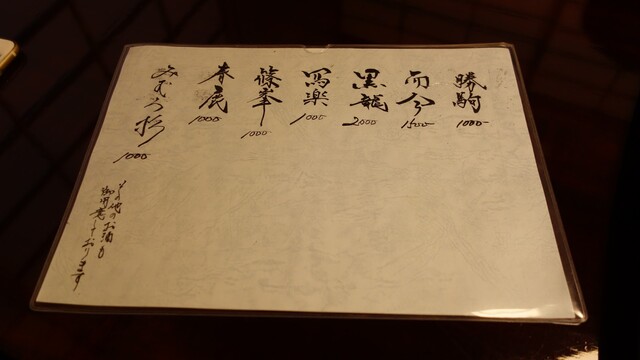 勝駒
1000
而今
1500
黒龍
2000
写楽
1000
篠峯
1000
春鹿
1000
みむろ杉
1000
その他のお酒も
御用意しております